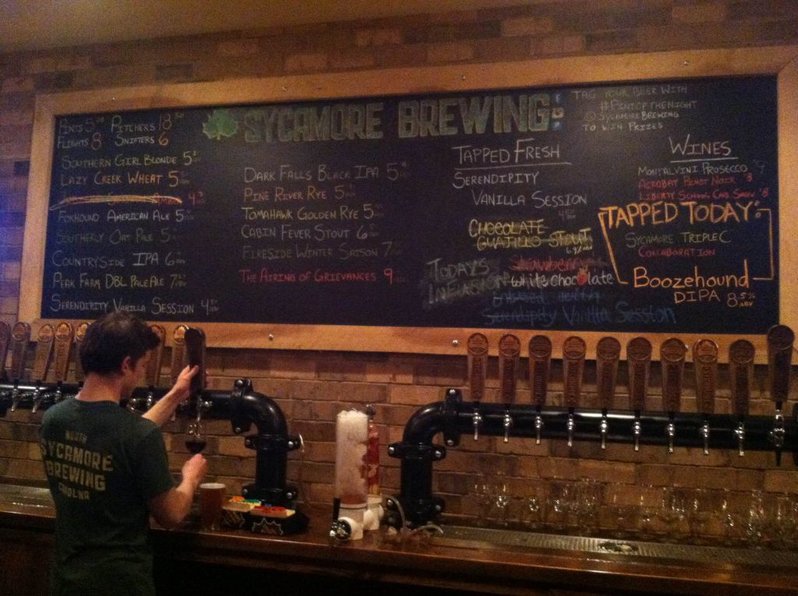 SYCAMORE BREWING
PINTS 5 PITCHERS 18
FLIGHTS 8 SNIFTERS 6
SOUTHERN GIRL BLONDE 5
LAZY CREEK WHEAT 5
FOXHOUND AMERICAN ALE 5
SOUTHERLY OAT PALE 5
COUNTRYSIDE IPA 6
PEAK FARM DBL PALE ALE 7
SERENDIPITY VANILLA SESSION 4
DARK FALLS BLACK IPA 5
PINE RIVER RYE 5
TOMAHAWK GOLDEN RYE 5
CABIN FEVER STOUT 6
FIRESIDE WINTER SAISON 7
THE AIRING OF GRIEVANCES 9
TAPPED FRESH
SERENDIPITY
VANILLA SESSION
CHOCOLATE
GUAJILLO STOUT
TODAY'S
INFUSION
Strawberry
white chocolate
Serendipity Vanilla Session
TAG YOUR BEER WITH
#PINTOFTHENIGHT
@SYCAMOREBREWING
TO WIN PRIZES
WINES
MONTALVINI PROSECCO
ACROBAT PINOT NOIR 8
LIBERTY SCHOOL CAB SAUV 8
TAPPED TODAY:
SYCAMORE TRIPLE C
COLLABORATION
Boozehound
DIPA 8.5% ABV
NORTH
SYCAMORE
BREWING
CAROLINA